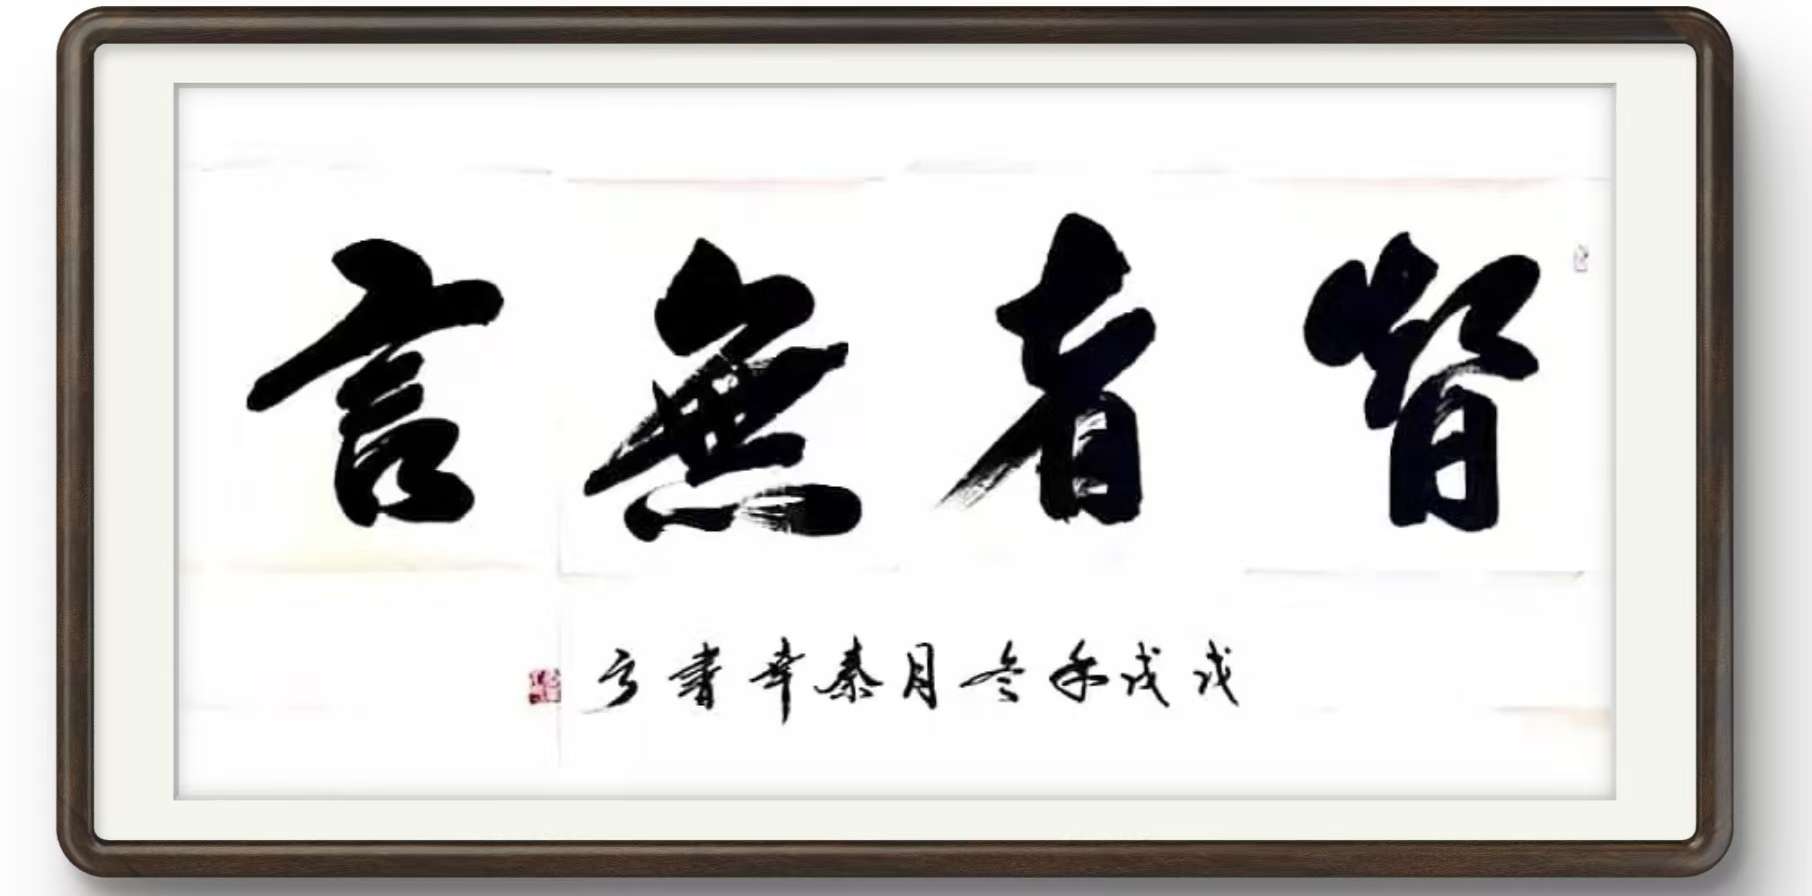 智者無言
戊戌年冬月秦幸書